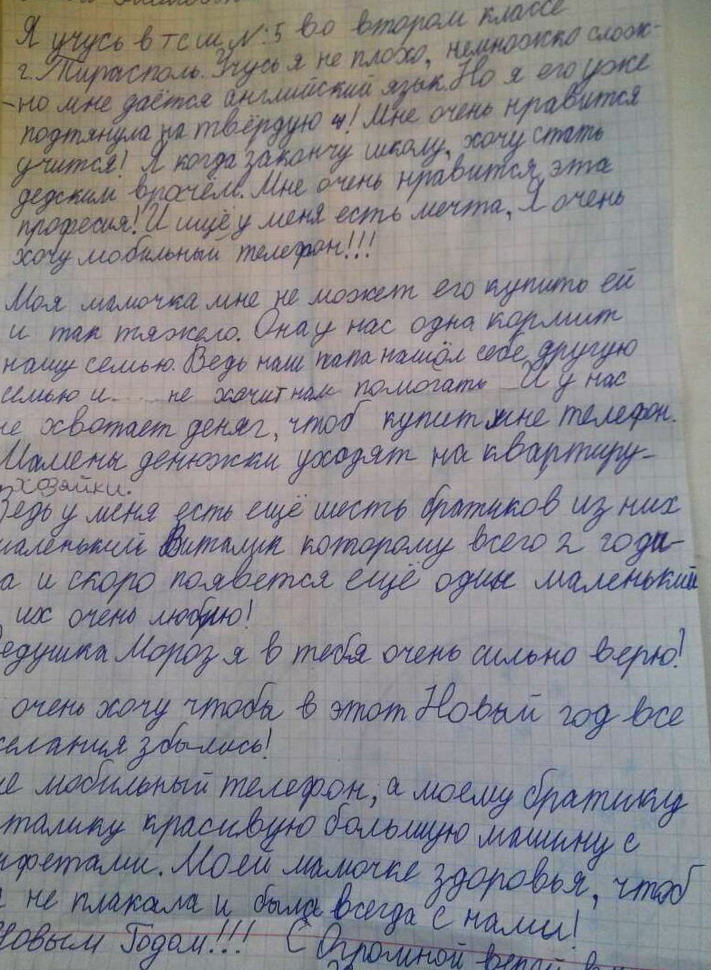 Я учусь в тсш N:5 во втором классе
г. Тирасполь. Учусь я не плохо, немножко слож-
-но мне даётся английский язык. Но я его уже
подтянула на твёрдую 4! Мне очень нравится
учится! Я когда закончу школу, хочу стать
дедским врачём. Мне очень нравится эта
професия! И ищё у меня есть мечта, Я очень
хочу мобильный телефон!!!
Моя мамочка мне не может его купить ей
и так тяжело. Она у нас одна кормит
нашу семью. Ведь наш папа нашол себе другую
семью и.... не хочит нам помогать И у нас
не хвотает деняг, чтоб купит мне телефон.
Мамены денюжки уходят на квартиру-
хозяйки.
Ведь у меня есть ещё шесть братиков из них
маленький Виталик которому всего 2 годи-
а и скоро появется ещё один маленький
их очень люблю!
Дедушка Мороз я в тебя очень сильно верю!
очень хочу чтобы в этот Новый год все
желания збылись!
не мобильный телефон, а моему братику
талику красивую большую машину с
нфетами. Моей мамочке здоровья, чтоб
не плакала и была всегда с нами!
Новым Годом!!! С Огромной верой в